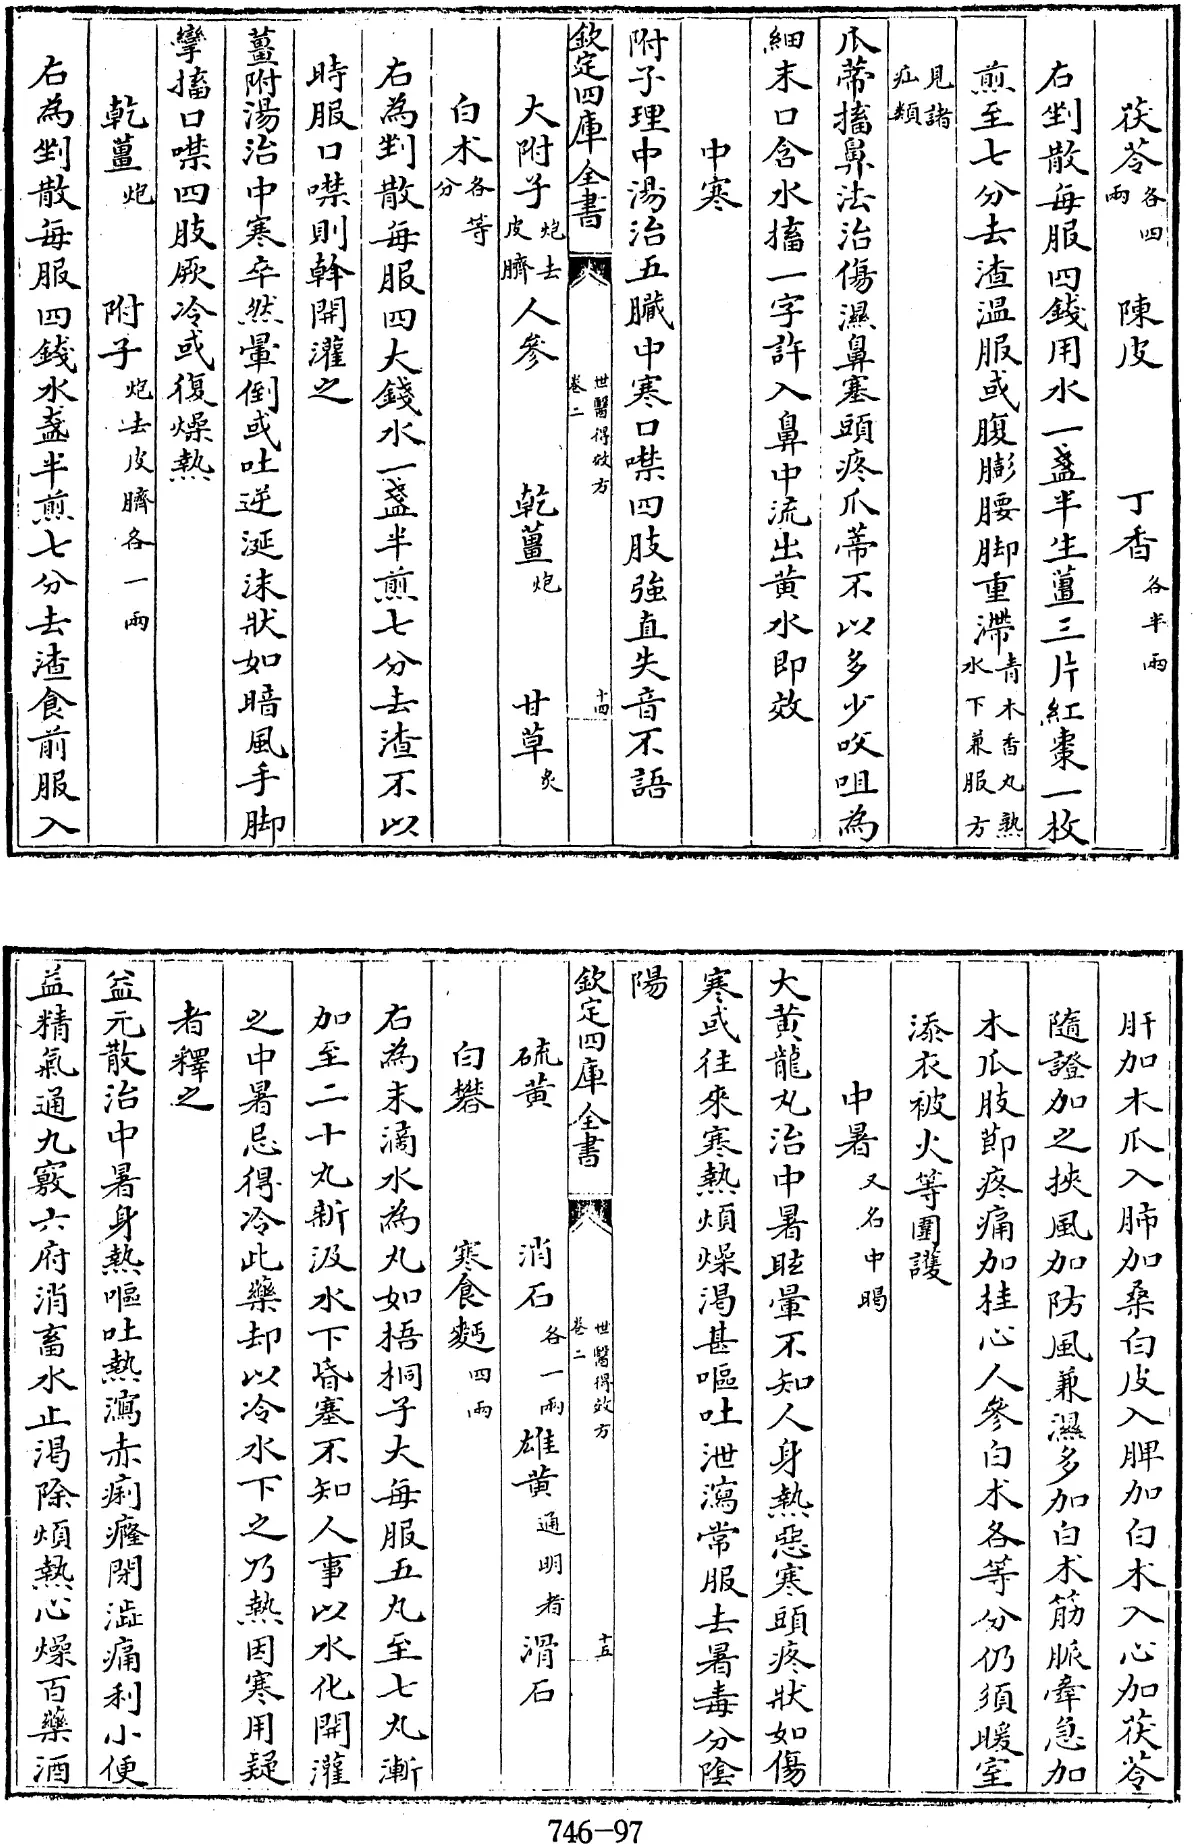 茯苓各四兩 陳皮 丁香各半兩
右剉散每服四錢用水一盞半生薑三片紅棗一枚
煎至七分去渣温服或腹膨腰脚重滯青木香丸熟水下兼服方
見諸疝類
爪蒂搐鼻法治傷濕鼻塞頭疼爪蒂不以多少㕮咀為
細末口含水搐一字許入鼻中流出黄水即效
中寒
附子理中湯治五臓中寒口噤四肢強直失音不語
欽定四庫全書 世醫得效方 卷二 十四
大附子炮去皮臍 人參 乾薑炮 甘草炙
白术各等分
右為剉散每服四大錢水一盞半煎七分去渣不以
時服口噤則斡開灌之
薑附湯治中寒卒然暈倒或吐逆涎沫狀如暗風手脚
攣搐口噤四肢厥冷或復燥熱
乾薑炮 附子炮去皮臍各一兩
右為剉散每服四錢水盞半煎七分去渣食前服入
肝加木瓜入肺加桑白皮入脾加白术入心加茯苓
隨證加之挾風加防風兼濕多加白术筋脈牽急加
木瓜肢節疼痛加桂心人參白术各等分仍須暖室
添衣被火等圍護
中暑又名中暍
大黄龍丸治中暑眩暈不知人身熱惡寒頭疼狀如傷
寒或往來寒熱煩燥渴甚嘔吐泄瀉常服去暑毒分陰
陽
欽定四庫全書 世醫得效方 卷二 十五
硫黄 消石各一兩 雄黄通明者 滑石
白礬 寒食麪四兩
右為末滴水為丸如梧桐子大每服五丸至七丸漸
加至二十丸新汲水下昏塞不知人事以水化開灌
之中暑忌得冷此藥却以冷水下之乃熱因寒用疑
者釋之
益元散治中暑身熱嘔吐熱瀉赤痢癃閉澁痛利小便
益精氣通九竅六府消畜水止渴除煩熱心燥百藥酒
746-97